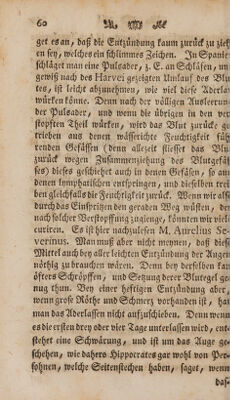 60
get es an, daß die Entzündung kaum zurück zu zieh
en sey, welches ein schlimmes Zeichen. In Spanie
schläget man eine Pulsader, z. E. an Schläfen, un
gewiß nach des Harvei gezeigten Umlauf des Blu
tes, ist leicht abzunehmen, wie viel diese Aderlas
würken könne. Denn nach der völligen Ausleerun
der Pulsader, und wenn die übrigen in den ver
stopften Theil würken, wird das Blut zurück ge
trieben aus denen wässerichte Feuchtigkeit führ
enden Gefässen (denn allezeit fliesset das Blut
zurück wegen Zusammenziehung des Blutgefä
ses) dieses geschiehet auch in denen Gefäsen, so an
denen lymphatischen entspringen, und dieselben trei
ben gleichfalls die Feuchtigkeit zurück. Wenn wir als
durch das Einspritzen den geraden Weg wüsten, der
nach solcher Verstopfung zugienge, könnten wir viel
curiren. Es ist hier nachzulesen M. Aurelius Se-
verinus. Man muß aber nicht meynen, daß diese
Mittel auch bey aller leichten Entzündung der Augen
nöthig zu brauchen wären. Denn bey derselben kan
öfters Schröpffen, und Setzung derer Blutegel ge
nug thun. Bey einer heftigen Entzündung aber,
wenn grose Röthe und Schmerz vorhanden ist, ha
man das Aderlassen nicht aufzuschieben. Denn wenn
es die ersten drey oder vier Tage unterlassen wird, ent
stehet eine Schwärung, und ist um das Auge ge
schehen, wie dahers Hippocrates gar wohl von Per-
sohnen, welche Seitenstechen haben, saget, wenn
das-